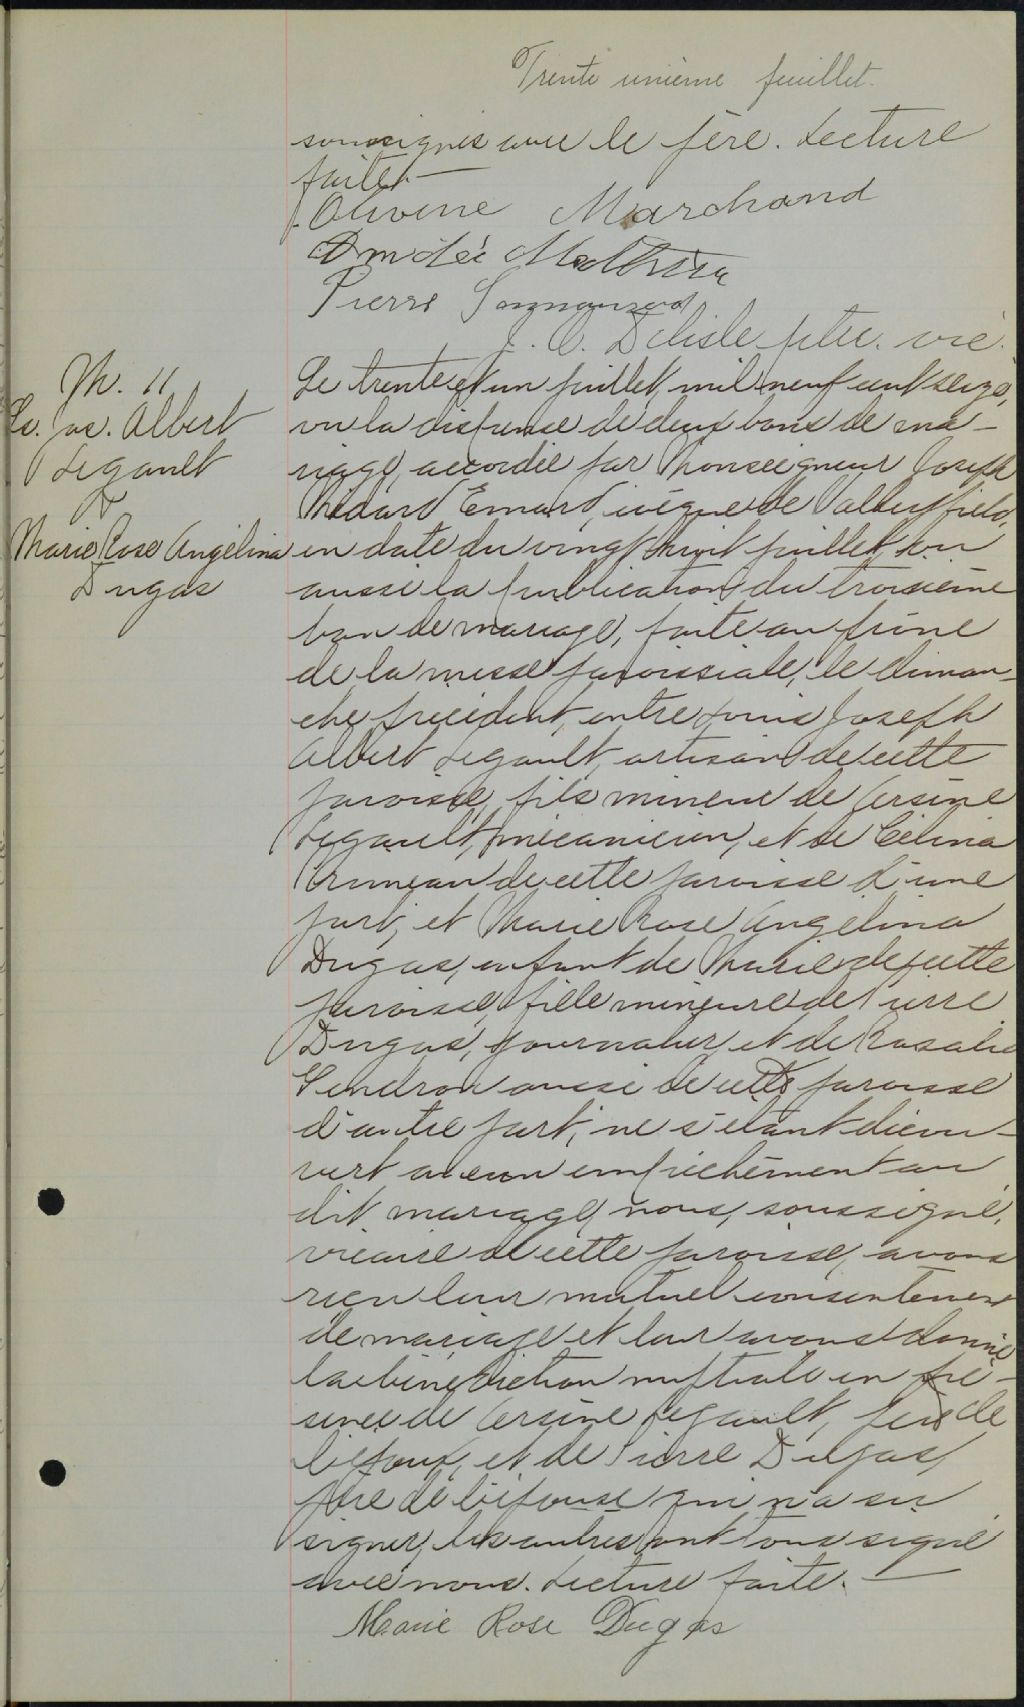 Trente unième feuillet.
soussignés avec le père. Lecture
faite.
Olivine Marchand
Amédée
Pierre
J. O. Delisle ptre. vic.
M. 11
Ls. Jos. Albert
Legault
&
Marie Rose Angélina
Dugas
Le trente et un juillet, mil neuf cent seize,
vu la dispense de deux bans de ma-
riage, accordée par Monseigneur Joseph
Médard Emard, évêque de Valleyfield,
en date du vingt huit juillet, vu
aussi la publication du troisième
ban de mariage, faite au prône
de la messe paroissiale, le diman-
che précédent, entre Louis Joseph
Albert Legault, artisan de cette
paroisse, fils mineur de Arsène
Legault, mécanicien, et de Célina
Primeau de cette paroisse d'une
part, et Marie Rose Angélina
Dugas, enfant de Marie de cette
paroisse, fille mineure de Pierre
Dugas, journalier, et de Rosalie
Gendron aussi de cette paroisse
d'autre part; ne s'étant décou-
vert aucun empêchement au
dit mariage, nous, soussigné,
vicaire de cette paroisse, avons
reçu leur mutuel consentement
de mariage et leur avons donné
la bénédiction nuptiale en pré-
sence de Arsène Legault, père de
l'époux, et de Pierre Dugas,
père de l'épouse qui n'a su
signer, les autres ont tous signé
avec nous. Lecture faite.
Marie Rose Dugas